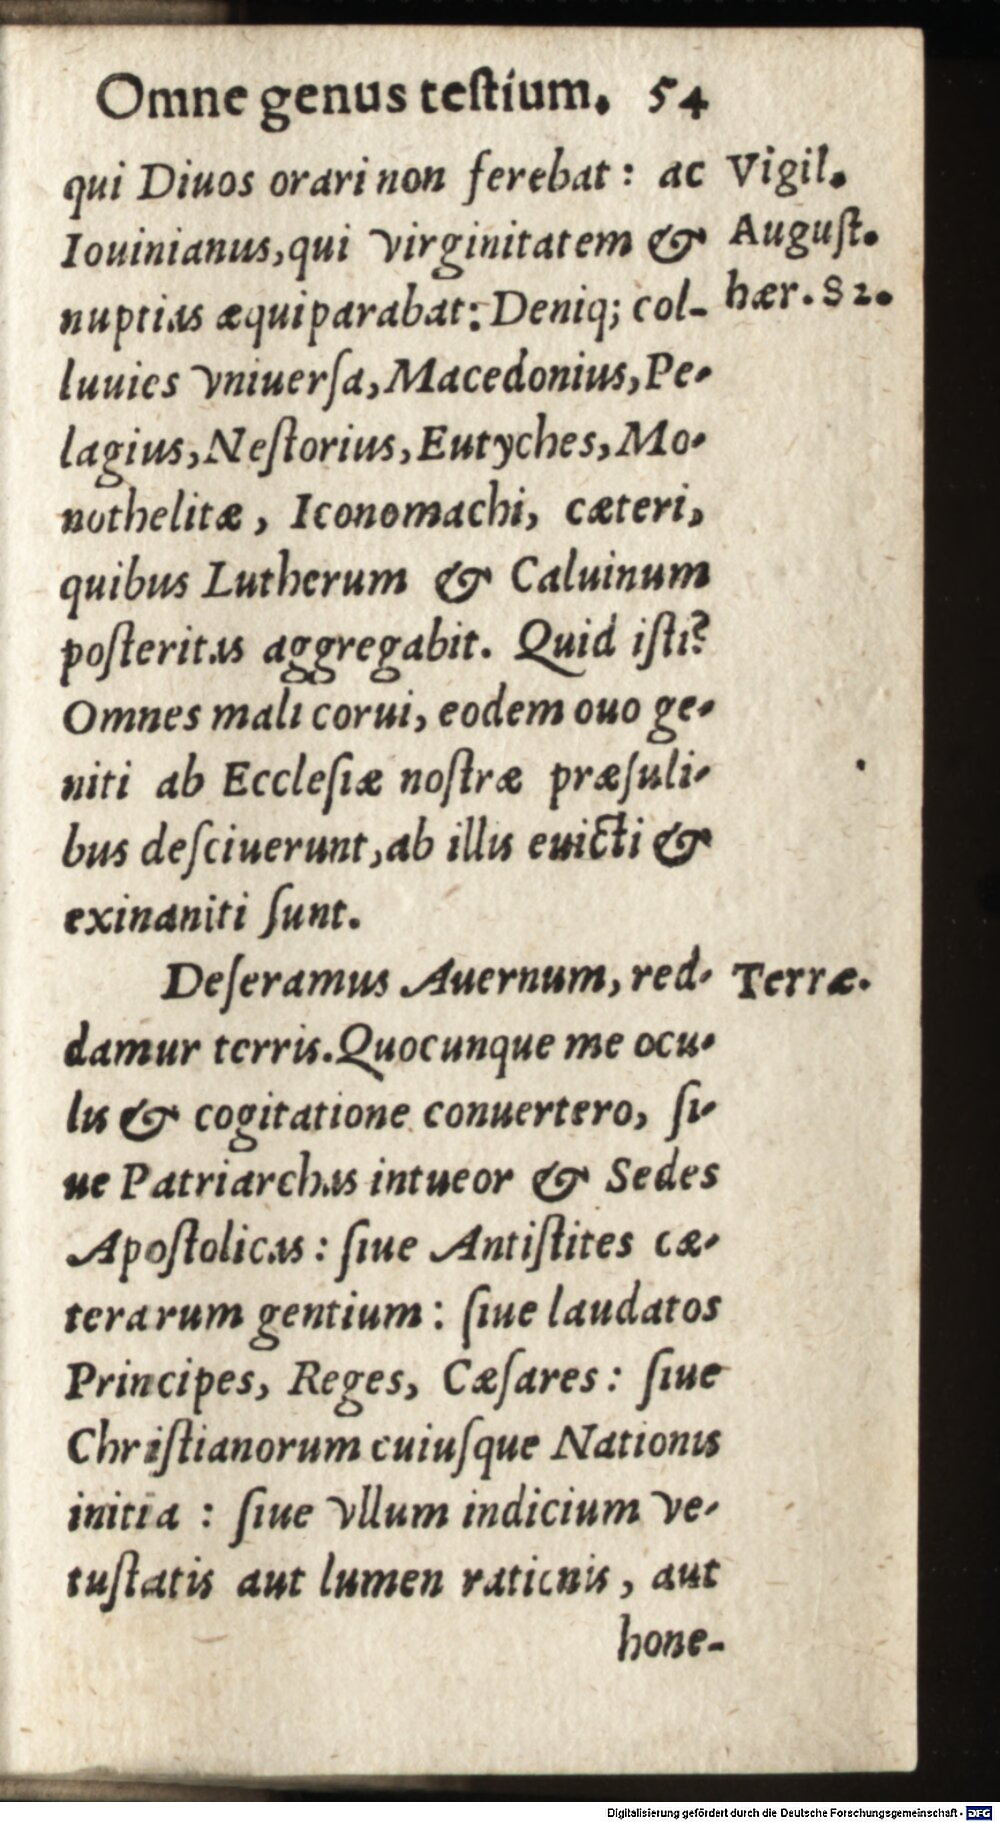 Omne genus teſtium. 54
qui Diuos orari non ferebat: ac
Vigil.
Iouinianus, qui virginitatem &
Auguſt.
nuptias æquiparabat: Deniq; col-
hær. 82.
luuies vniuerſa, Macedonius, Pe-
lagius, Neſtorius, Eutyches, Mo-
nothelitæ, Iconomachi, cæteri,
quibus Lutherum & Caluinum
poſteritas aggregabit. Quid iſti?
Omnes mali corui, eodem ouo ge-
niti ab Eccleſiæ noſtræ præſuli-
bus deſciuerunt, ab illis euicti &
exinaniti ſunt.
Deſeramus Auernum, red-
Terræ.
damur terris. Quocunque me ocu-
lis & cogitatione conuertero, ſi-
ue Patriarchas intueor & Sedes
Apoſtolicas: ſiue Antiſtites cæ-
terarum gentium: ſiue laudatos
Principes, Reges, Cæſares: ſiue
Chriſtianorum cuiuſque Nationis
initia: ſiue vllum indicium ve-
tuſtatis aut lumen rationis, aut
hone-
Digitalisierung gefördert durch die Deutsche Forschungsgemeinschaft - DFG